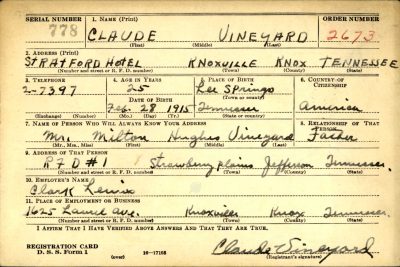 SERIAL NUMBER 1. NAME (Print) ORDER NUMBER
778 CLAUDE VINEYARD 2673
(First) (Middle) (Last)
2. ADDRESS (Print)
STRATFORD HOTEL KNOXVILLE KNOX TENNESSEE
(Number and street or R. F. D. number) (Town) (County) (State)
3. TELEPHONE 4. AGE IN YEARS 5. PLACE OF BIRTH 6. COUNTRY OF CITIZENSHIP
2-7397 25 Lee Springs
DATE OF BIRTH (Town or county)
Feb. 28 1915 Tennessee America
(Exchange) (Number) (Mo.) (Day) (Yr.) (State or country)
7. NAME OF PERSON WHO WILL ALWAYS KNOW YOUR ADDRESS 8. RELATIONSHIP OF THAT PERSON
Mr. Milton Hughes Vineyard Father
(Mr., Mrs., Miss) (First) (Middle) (Last)
9. ADDRESS OF THAT PERSON
RFD #1 Strawberry plains Jefferson Tennessee.
(Number and street or R. F. D. number) (Town) (County) (State)
10. EMPLOYER'S NAME
Clark
11. PLACE OF EMPLOYMENT OR BUSINESS
1625 Laurel ave. Knoxville Knox Tennessee.
(Number and street or R. F. D. number) (Town) (County) (State)
I AFFIRM THAT I HAVE VERIFIED ABOVE ANSWERS AND THAT THEY ARE TRUE.
REGISTRATION CARD
D. S. S. Form 1 16-17105 Claude Vineyard
(over) (Registrant's signature)